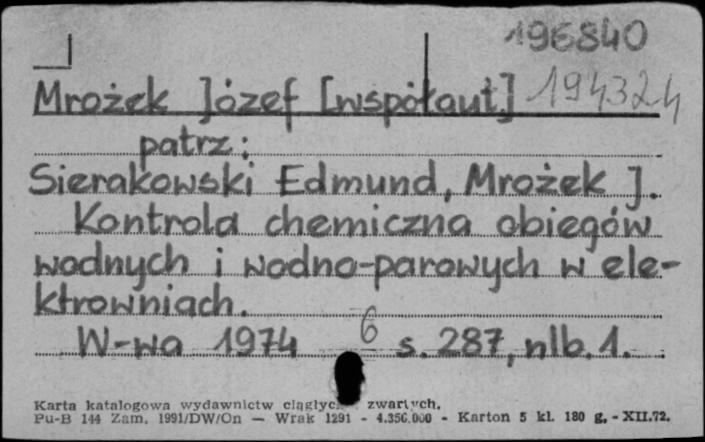 196840
Mrożek Józef [współaut] 194324
patrz:
Sierakowski Edmund, Mrożek J.
Kontrola chemiczna obiegów
wodnych i wodno-parowych w ele-
ktrowniach.
W-wa 1974 6 s. 287, nlb. 1.
Karta katalogowa wydawnictw ciągłych zwartych.
Pu-B 144 Zam. 1991/DW/On — Wrak 1291 - 4.356.000 - Karton 5 kl. 180 g. - XII.72.